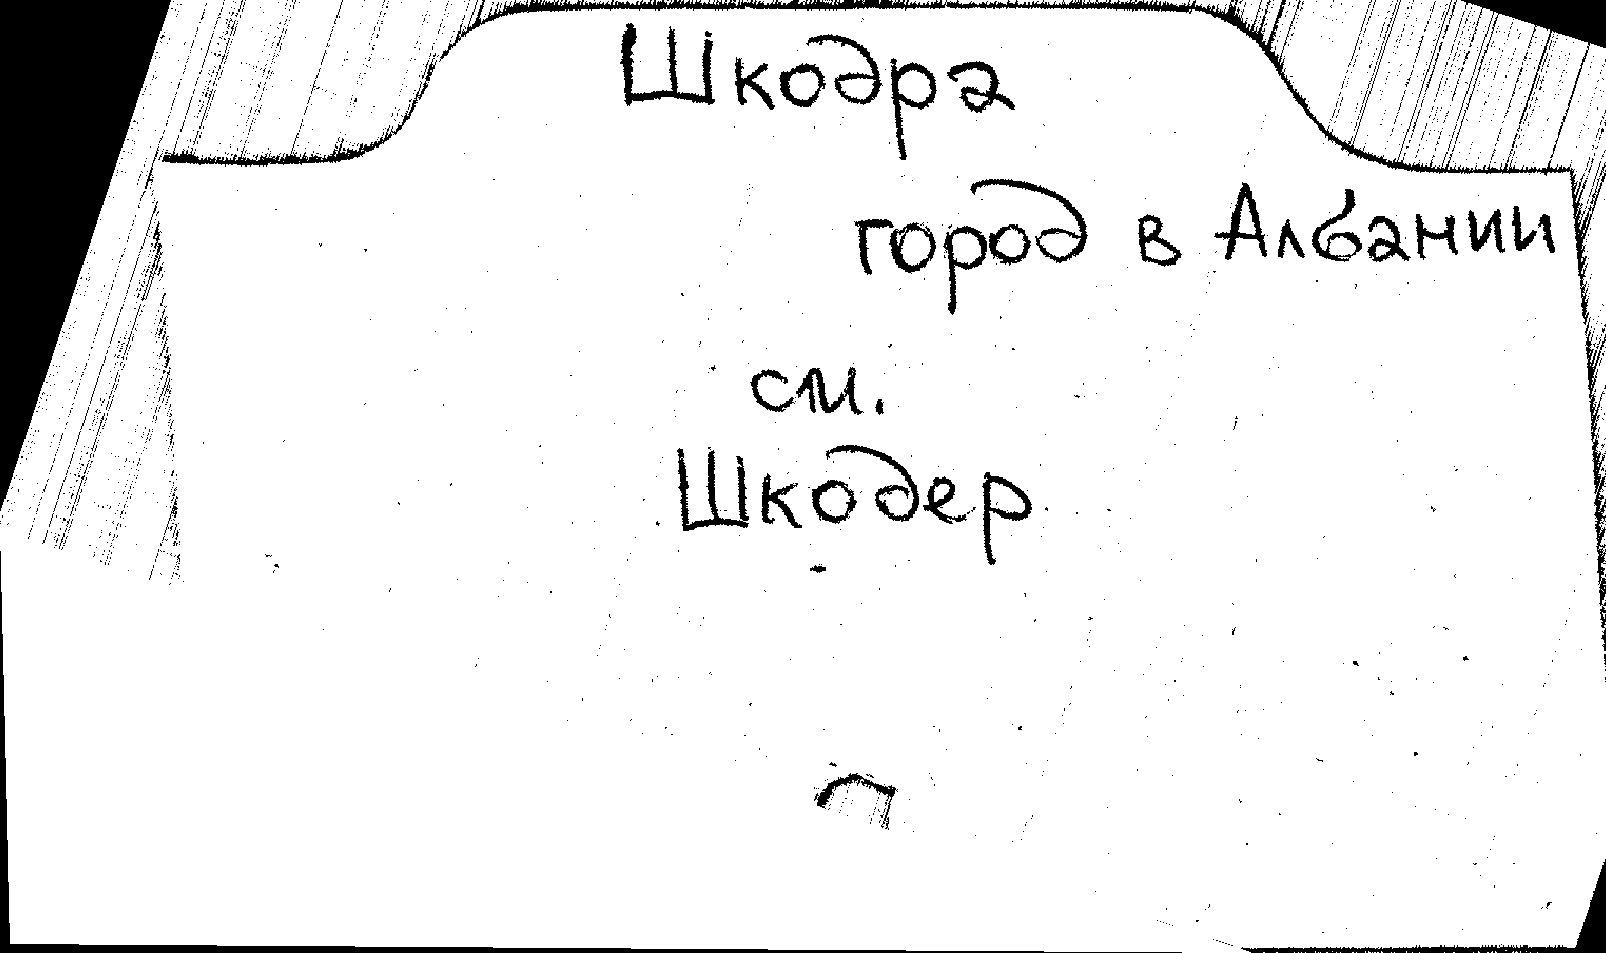 Шкодра
город в Албании
см.
Шкодер